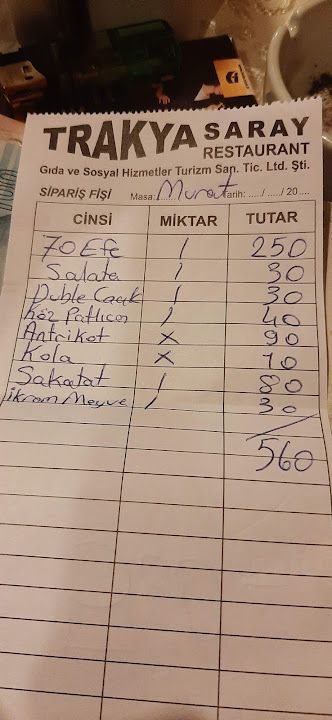 TRAKYA SARAY
RESTAURANT
Gıda ve Sosyal Hizmetler Turizm San. Tic. Ltd. Şti.
SİPARİŞ FİŞİ Masa: Murat Tarih: ...../ ...../ 20 ....
CİNSİ MİKTAR TUTAR
70 Efe / 250
Salata / 30
Duble Cacık / 30
Köz Patlıcan / 40
Antrikot x 90
Kola x 10
Sakatat / 80
ikram Meyve / 30
560